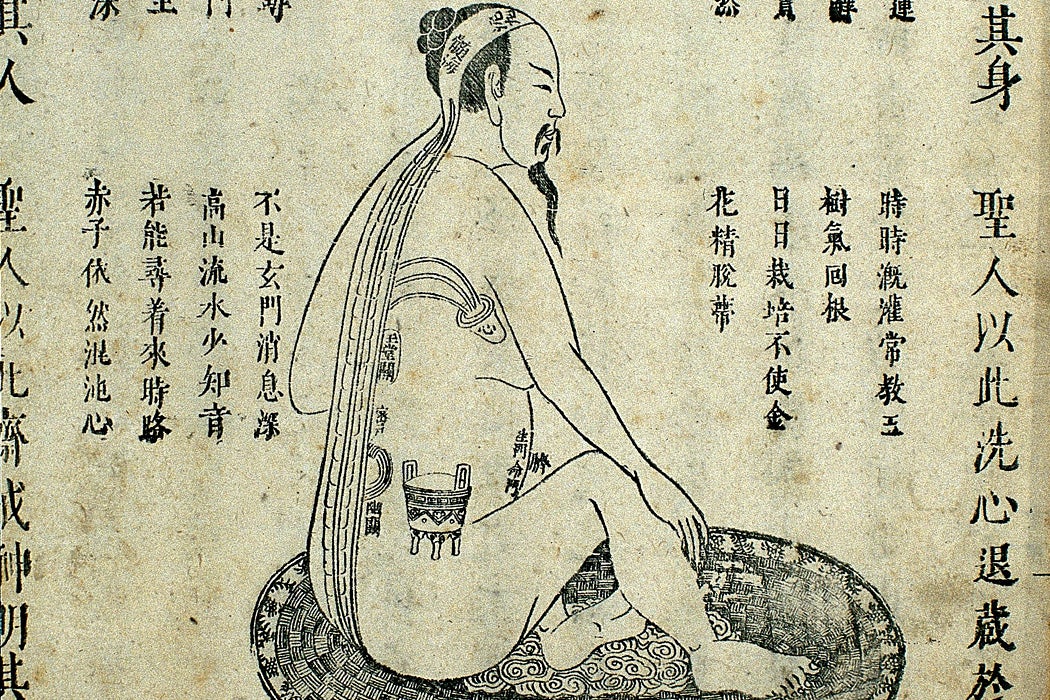 其身
聖人以此洗心退藏於
時時溉灌常教玉
樹氣回根
日日栽培不使金
花精脫蒂
髓海
心
臍
不是玄門消息深
高山流水少知音
若能尋着來時路
赤子依然混池心
其人
聖人以此齋戒神明其